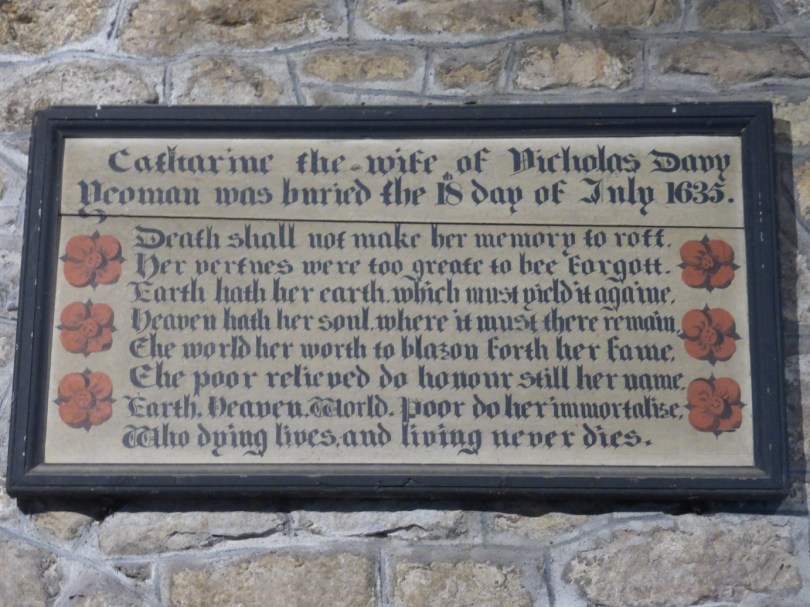 Catharine the wife of Nicholas Davy
Yeoman was buried the 18th day of July 1635.
Death shall not make her memory to rott.
Her vertues were too greate to bee forgott.
Earth hath her earth, which must yield it againe,
Heaven hath her soul, where it must there remain,
The world her worth to blazon forth her fame,
The poor relieved do honour still her name.
Earth, Heaven, World, Poor do her immortalise,
Who dying lives, and living never dies.